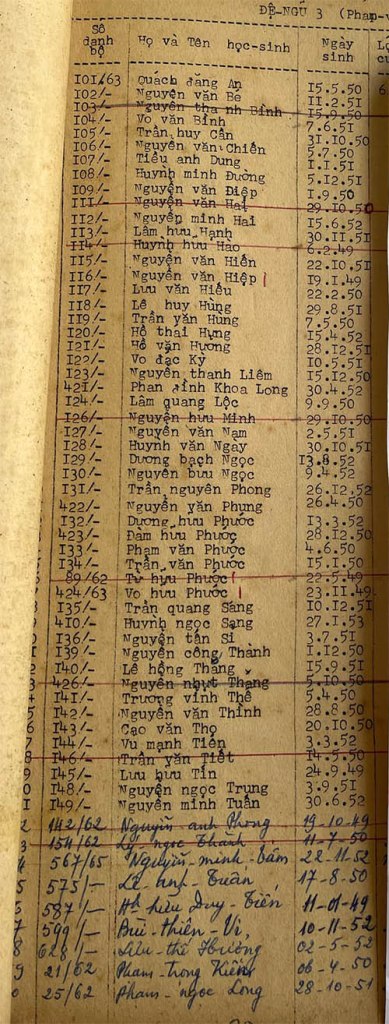 ĐỆ-NGŨ 3 (Pháp
Số danh bộ Họ và Tên học-sinh Ngày sinh
101/63 Quách đăng An 15.5.50 6
102/- Nguyễn văn Bé 11.2.51
103/- Nguyễn thanh Bình 15.9.50
104/- Vo văn Bỉnh 7.6.51
105/- Trần huy Cần 31.10.50
106/- Nguyễn văn Chiến 5.7.50
107/- Tiêu anh Dung 1.1.51
108/- Huynh minh Đường 5.12.51
109/- Nguyễn văn Điệp 1.9.50
111/- Nguyễn văn Hai 29.10.50
112/- Nguyễn minh Hai 15.6.52
113/- Lâm hưu Hạnh 30.11.51
114/- Huynh hưu Hao 6.2.49
115/- Nguyễn văn Hiến 22.10.51
116/- Nguyễn văn Hiệp 19.1.49
117/- Lưu văn Hiếu 22.2.50
118/- Lê huy Hùng 29.8.51
119/- Trần văn Hùng 7.5.50
120/- Hồ thai Hưng 15.4.52
121/- Hồ văn Hương 28.12.51
122/- Vo đạc Kỳ 10.5.51
123/- Nguyễn thanh Liêm 15.12.50
421/- Phan đình Khoa Long 30.4.52
124/- Lâm quang Lộc 9.9.50
126/- Nguyễn hưu Minh 29.10.50
127/- Nguyễn văn Nam 2.5.51
128/- Huynh văn Ngay 30.10.51
129/- Dương bạch Ngọc 13.8.52
130/- Nguyễn bưu Ngọc 9.4.52
131/- Trần nguyên Phong 26.12.52
422/- Nguyễn văn Phụng 26.4.50
132/- Dương hưu Phước 13.3.52
423/- Đàm hưu Phước 28.12.50
133/- Phạm văn Phước 4.6.50
134/- Trần văn Phước 15.1.50
89/62 Từ hưu Phước 22.5.49
424/63 Vo hưu Phước 23.11.49
135/- Trần quang Sáng 10.12.51
410/- Huynh ngọc Sang 27.1.53
136/- Nguyễn tấn Si 3.7.51
139/- Nguyễn công Thành 1.12.50
140/- Lê hồng Thắng 15.9.51
426/- Nguyễn nhựt Thạng 5.10.50
141/- Trương vinh Thế 5.4.50
142/- Nguyễn văn Thinh 28.8.50
143/- Cao văn Thọ 20.10.50
144/- Vu mạnh Tiến 3.3.52
146/- Trần văn Tiết 14.5.50
145/- Lưu bưu Tin 24.9.49
148/- Nguyễn ngọc Trung 3.9.51
149/- Nguyễn minh Tuấn 30.6.52
142/62 Nguyễn anh Phong 19-10-49
154/62 Lý ngọc Thanh 11-7-50
567/65 Nguyễn-minh-Tâm 22-11-52
575/- Lê anh Tuấn 17-8-50
587/- Hh hữu Duy-Tiến 11-01-49
599/- Bùi-thiên-Vị 10-11-52
628/- Liêu-thế Hường 02-5-52
21/62 Phạm-trọng Kiên 06-4-50
25/62 Phạm-ngọc Long 28-10-51